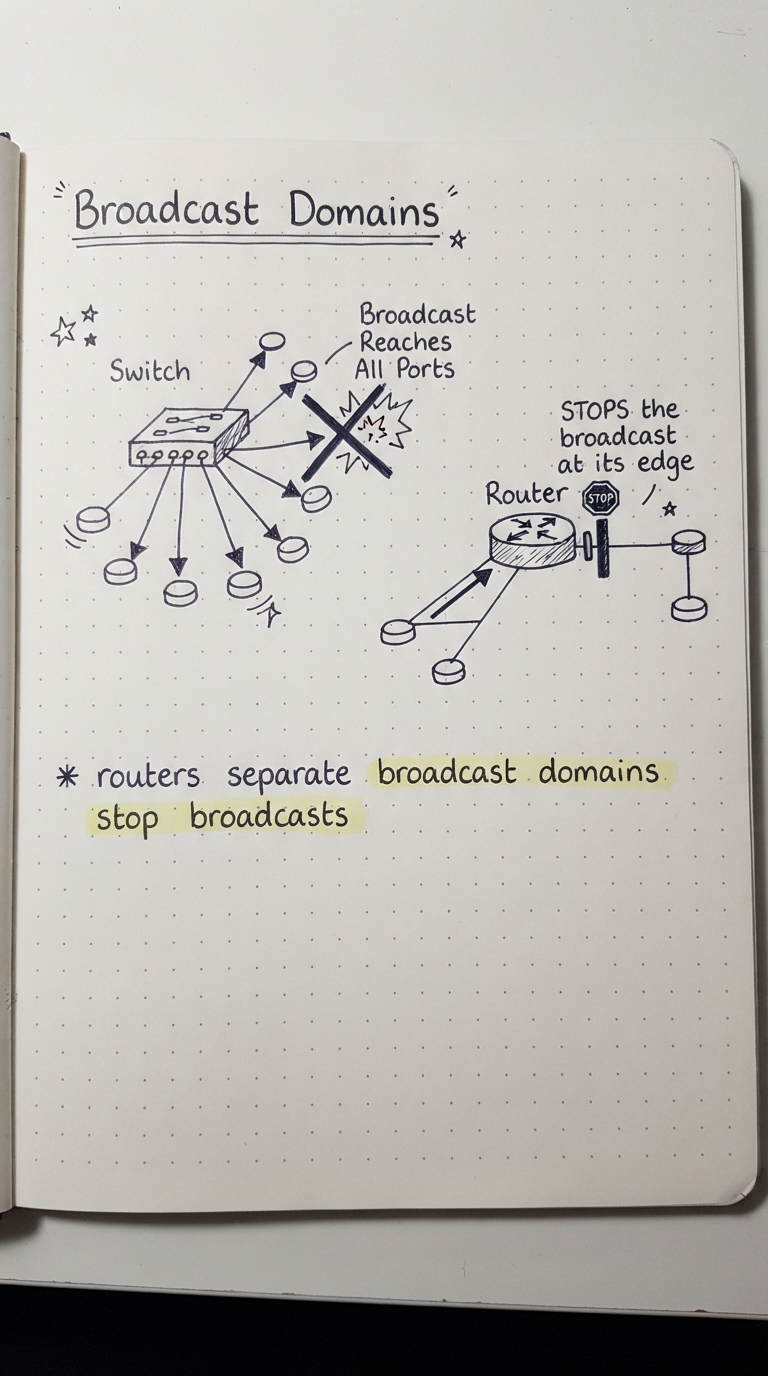 Broadcast Domains
Switch
Broadcast
Reaches
All Ports
STOPS the
broadcast
at its edge
Router
STOP
* routers separate broadcast domains
stop broadcasts